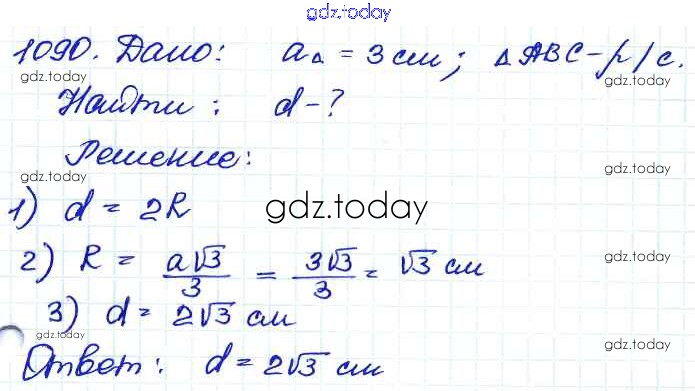 gdz.today
1090. Дано: a△ = 3 см; △ABC – р/с.
gdz.today gdz.today
Найти: d – ?
Решение:
gdz.today gdz.today
1) d = 2R
gdz.today
2) R = a√3/3 = 3√3/3 = √3 см
gdz.today gdz.today
3) d = 2√3 см
gdz.today gdz.today
Ответ: d = 2√3 см